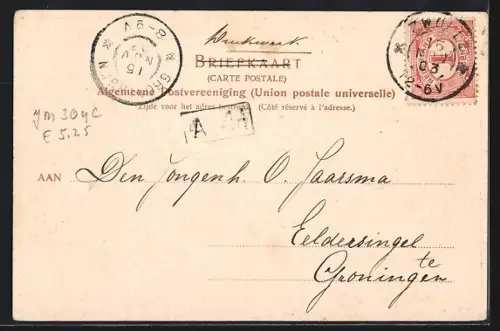 Drukwerk
BRIEFKAART
(CARTE POSTALE)
Algemeene Postvereeniging (Union postale universelle)
Zijde voor het adres bestemd. (Côté réservé à l'adresse.)
8-9V
15
NOV
ZWOLLE
15
03
12-6V
1
JM 304c
E 5,25
AAN
Den Jongenh. O. Jaarsma
Eeldersingel
te
Groningen